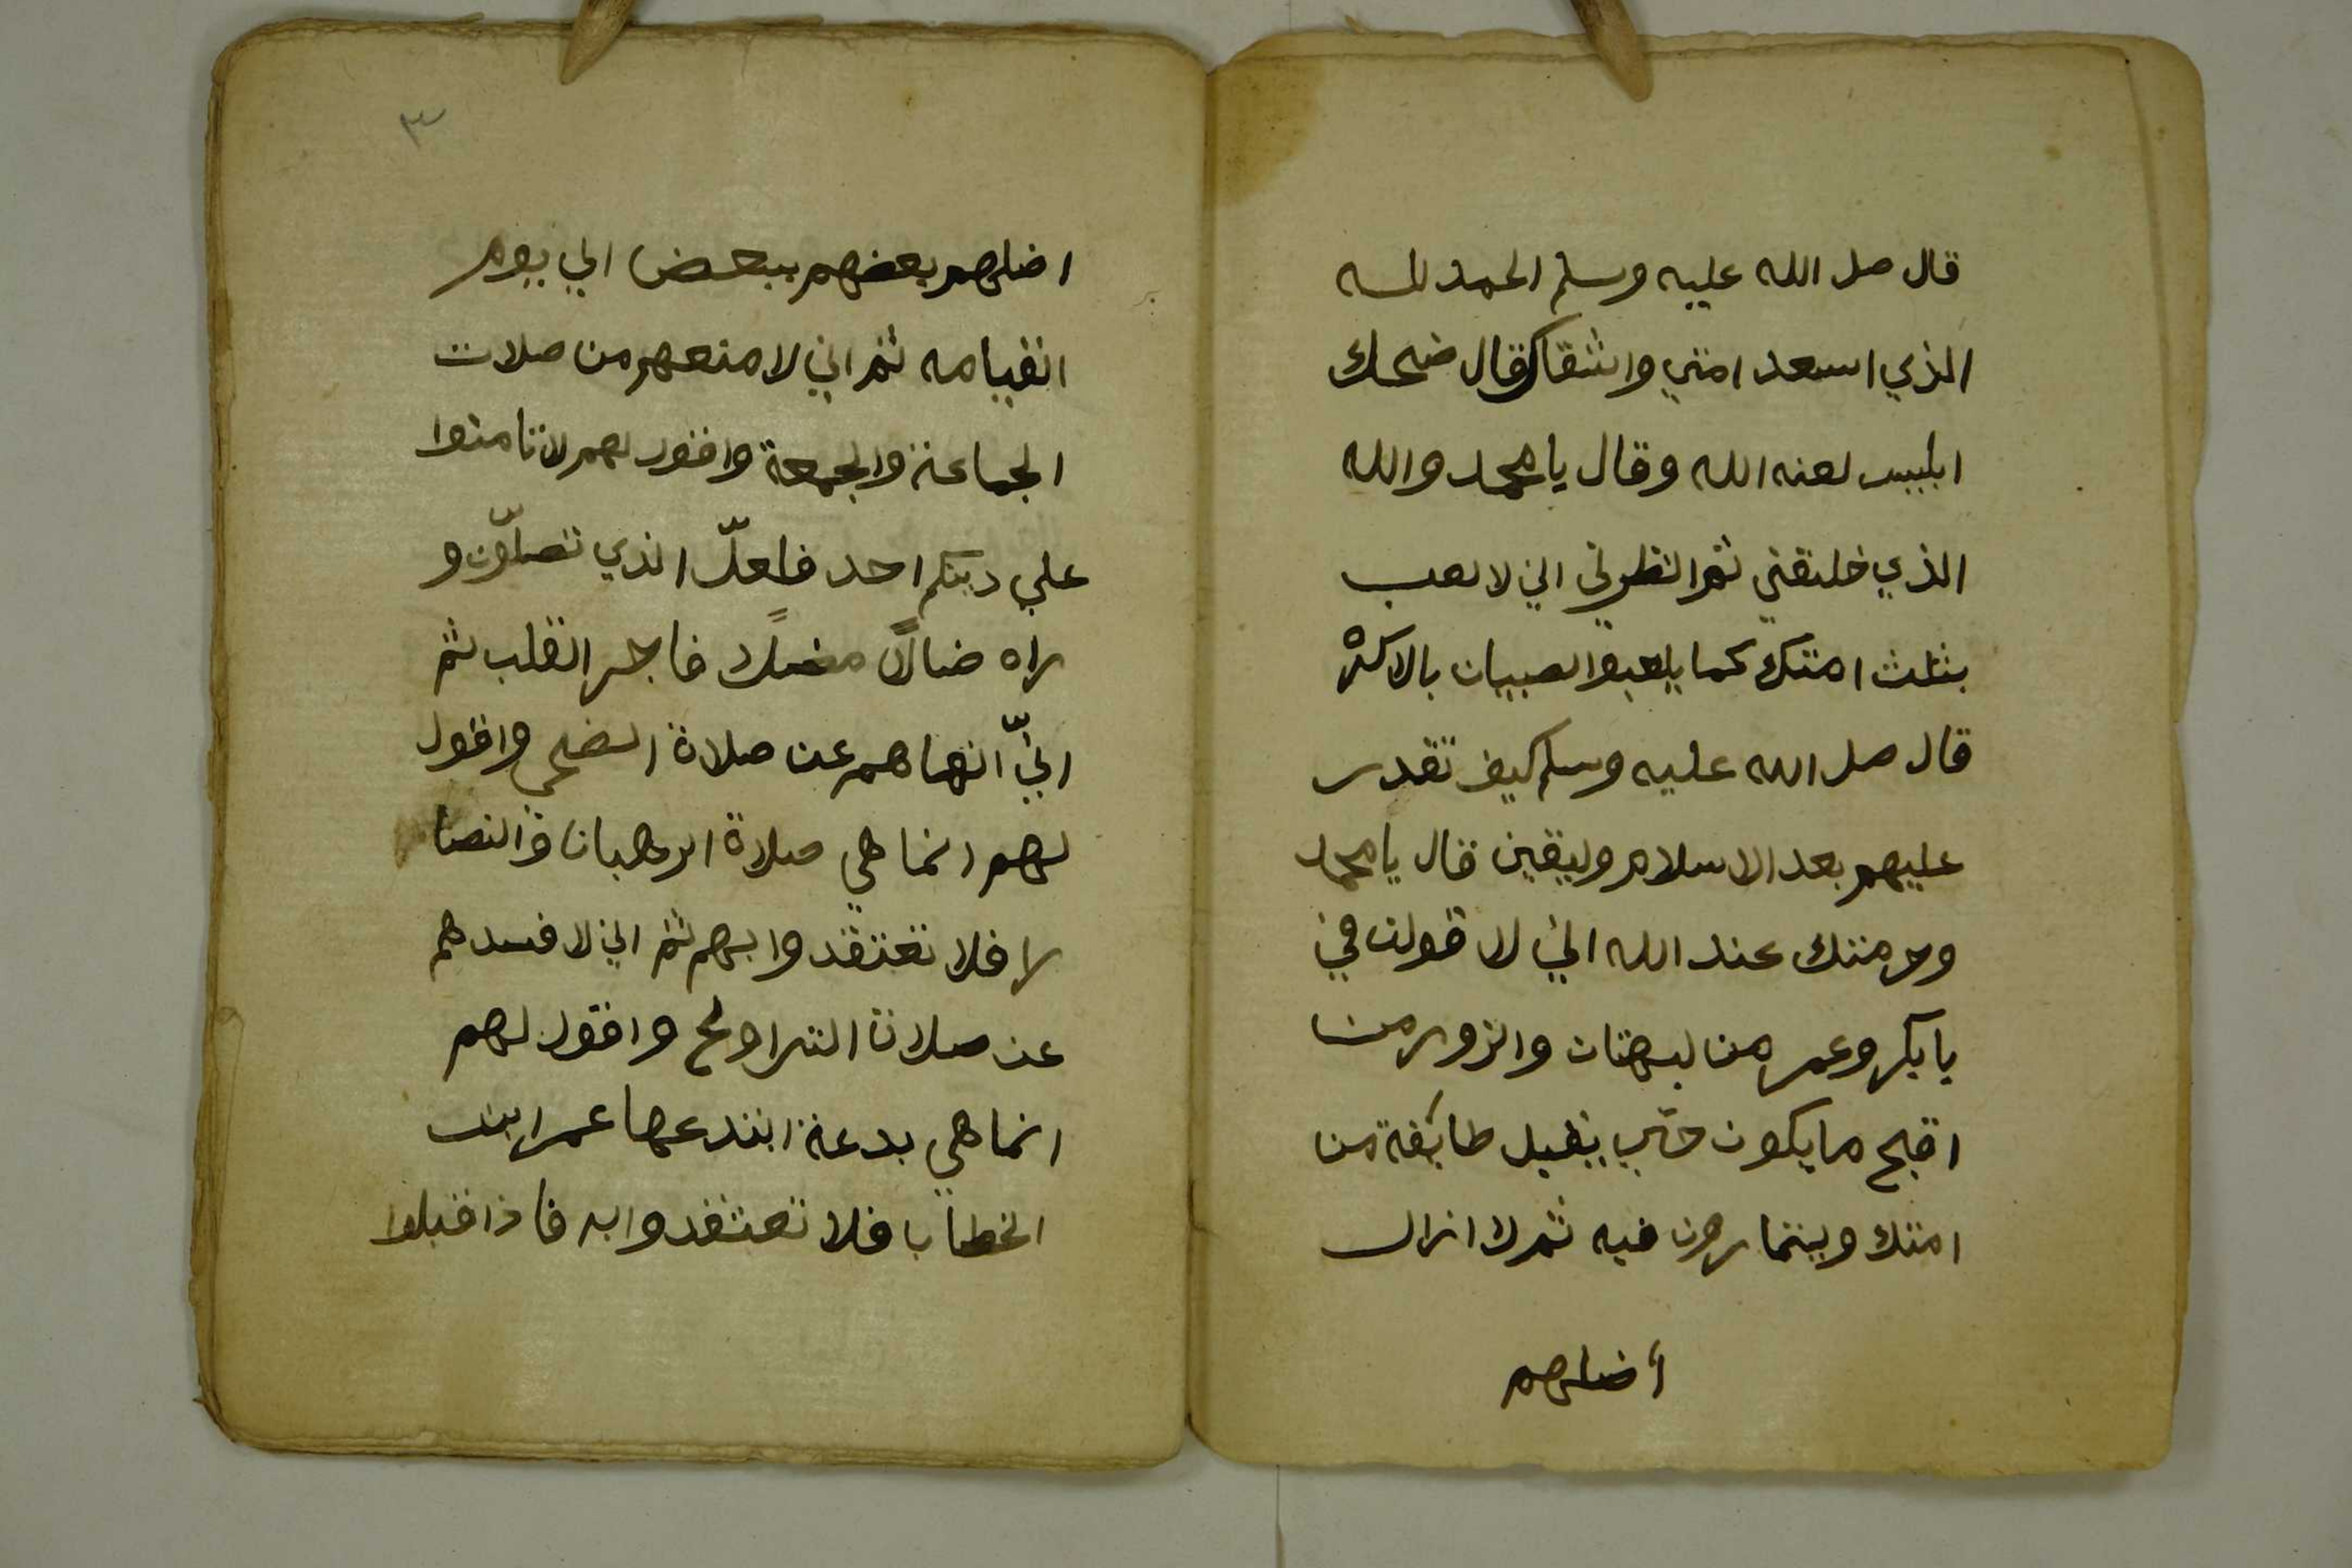 قال صل الله عليه وسلم الحمد لله
الذي اسعد امتي واشقاك قال ضحك
ابليس لعنه الله وقال يا محمد والله
الذي خلقني ثم انظرني اني لالعب
بثلث امتك كما يلعبوا لصبيان بالاكره
قال صل الله عليه وسلم كيف تقدر
عليهم بعد الاسلام وليقين قال يا محمد
وحرمتك عند الله اني لا قولن في
يا بكر وعمر من لبهتان والزور من
اقبح ما يكون حتي يقبل طائفة من
امتك ويتمارون فيه ثم لا ازال
أضلهم
٣
اضلهم بعضهم ببعض الي يوم
القيامه ثم اني لا منعهم من صلات
الجماعة والجمعة واقول لهم لا تامنوا
علي دينكم احد فلعلّ الذي تصلّون و
راه ضالاً مضلاً فاجر القلب ثم
انيّ انهاهم عن صلاة الضحي واقول
لهم انما هي صلاة الرهبان والنصا
را فلا تعتقدوا بهم ثم اني لا فسدهم
عن صلاة التراويح واقول لهم
انما هي بدعة ابتدعها عمر ابن
الخطاب فلا تعتقدوا به فاذا قبلوا